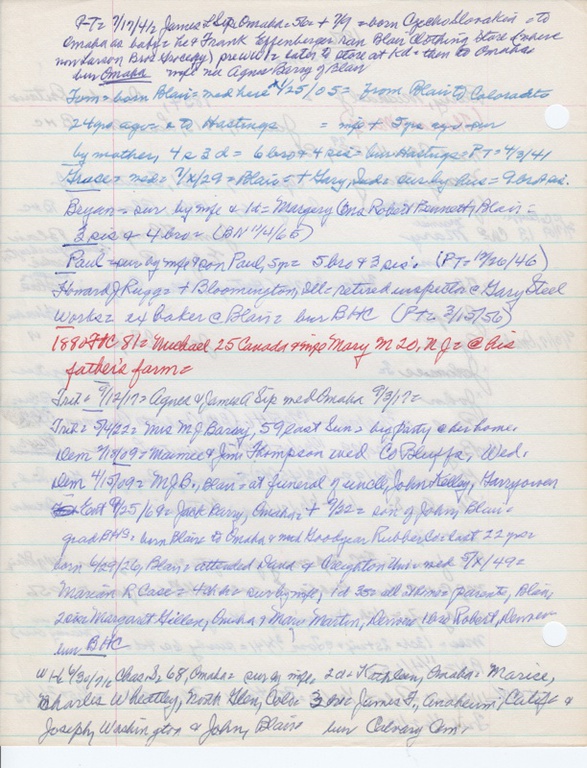 PT= 7/17/41, James L Sip, Omaha= 56= + 7/9 = born Czechoslovakia = to
Omaha as baby = he & Frank Effenberger ran Blair Clothing Store (where
now Larson Bros Grocery) pre WW 1= later to store at = then to Omaha=
bur Omaha mfe na Agnes Barry of Blair
Tom = born Blair = med here 4/25/05 = from Blair to Colorado
24 yrs ago = to Hastings = mfe + 5 yrs ago = sur
by mother, 4 s 3 d = 6 bro & 4 sis = bur Hastings = PT = 4/3/41
Grace = med = 7/X/29 = Blair = + Gary, Ind = sur by hus = 9 bro & sis =
Bryan = sur by mfe & 1 d = Margery (Mrs Robert Bennett, Blair =
3 sis & 4 bro = (BN
Paul = sur by mfe & son Paul, 5 yr = 5 bro & 3 sis = (PT = 12/26/46)
Howard J Rugg = + Bloomington, Ill = retired inspector @ Gary Steel
Works = ex baker @ Blair = bur BHC (PT = 3/15/56)
1880 FHC 81 = Michael 25 Canada & mfe Mary M 20, N J = @ his
father's farm =
Trib = 9/12/17 = Agnes & James A Sip med Omaha 9/3/17 =
Trib = 5/4/22 = Mrs M J Barry, 59 last Sun = big party @ her home.
Dem 7/15/09 = Mamie & Jim Thompson med Co Bluffs, Wed.
Dem 4/15/09 = M.J.B., Blair = at funeral of uncle, John Kelley, Garryowen
Ent 9/25/69 = Jack Barry, Omaha = + 9/22 = son of John, Blair =
grad BHS = born Blair to Omaha & med Goodyear Rubber Co last 22 yrs =
born 4/29/26, Blair = attended Dana & Creighton Univ = med 5/X/49 =
Marian R Case = 4 ch = sur by mfe, 1 d 3 s = all at home = parents, Blair,
2 sis Margaret Gillen, Omaha & Mary Martin, Denver 1 bro Robert, Denver
bur BHC
WH 6 Chas S, 68, Omaha = sur by mfe = 2 d = Kathleen, Omaha = Marice,
Charles Wheatley, North Glen, Colo = 3 bro = James F, Anaheim, Calif &
Joseph, Washington & John, Blair bur Calvary Cem.